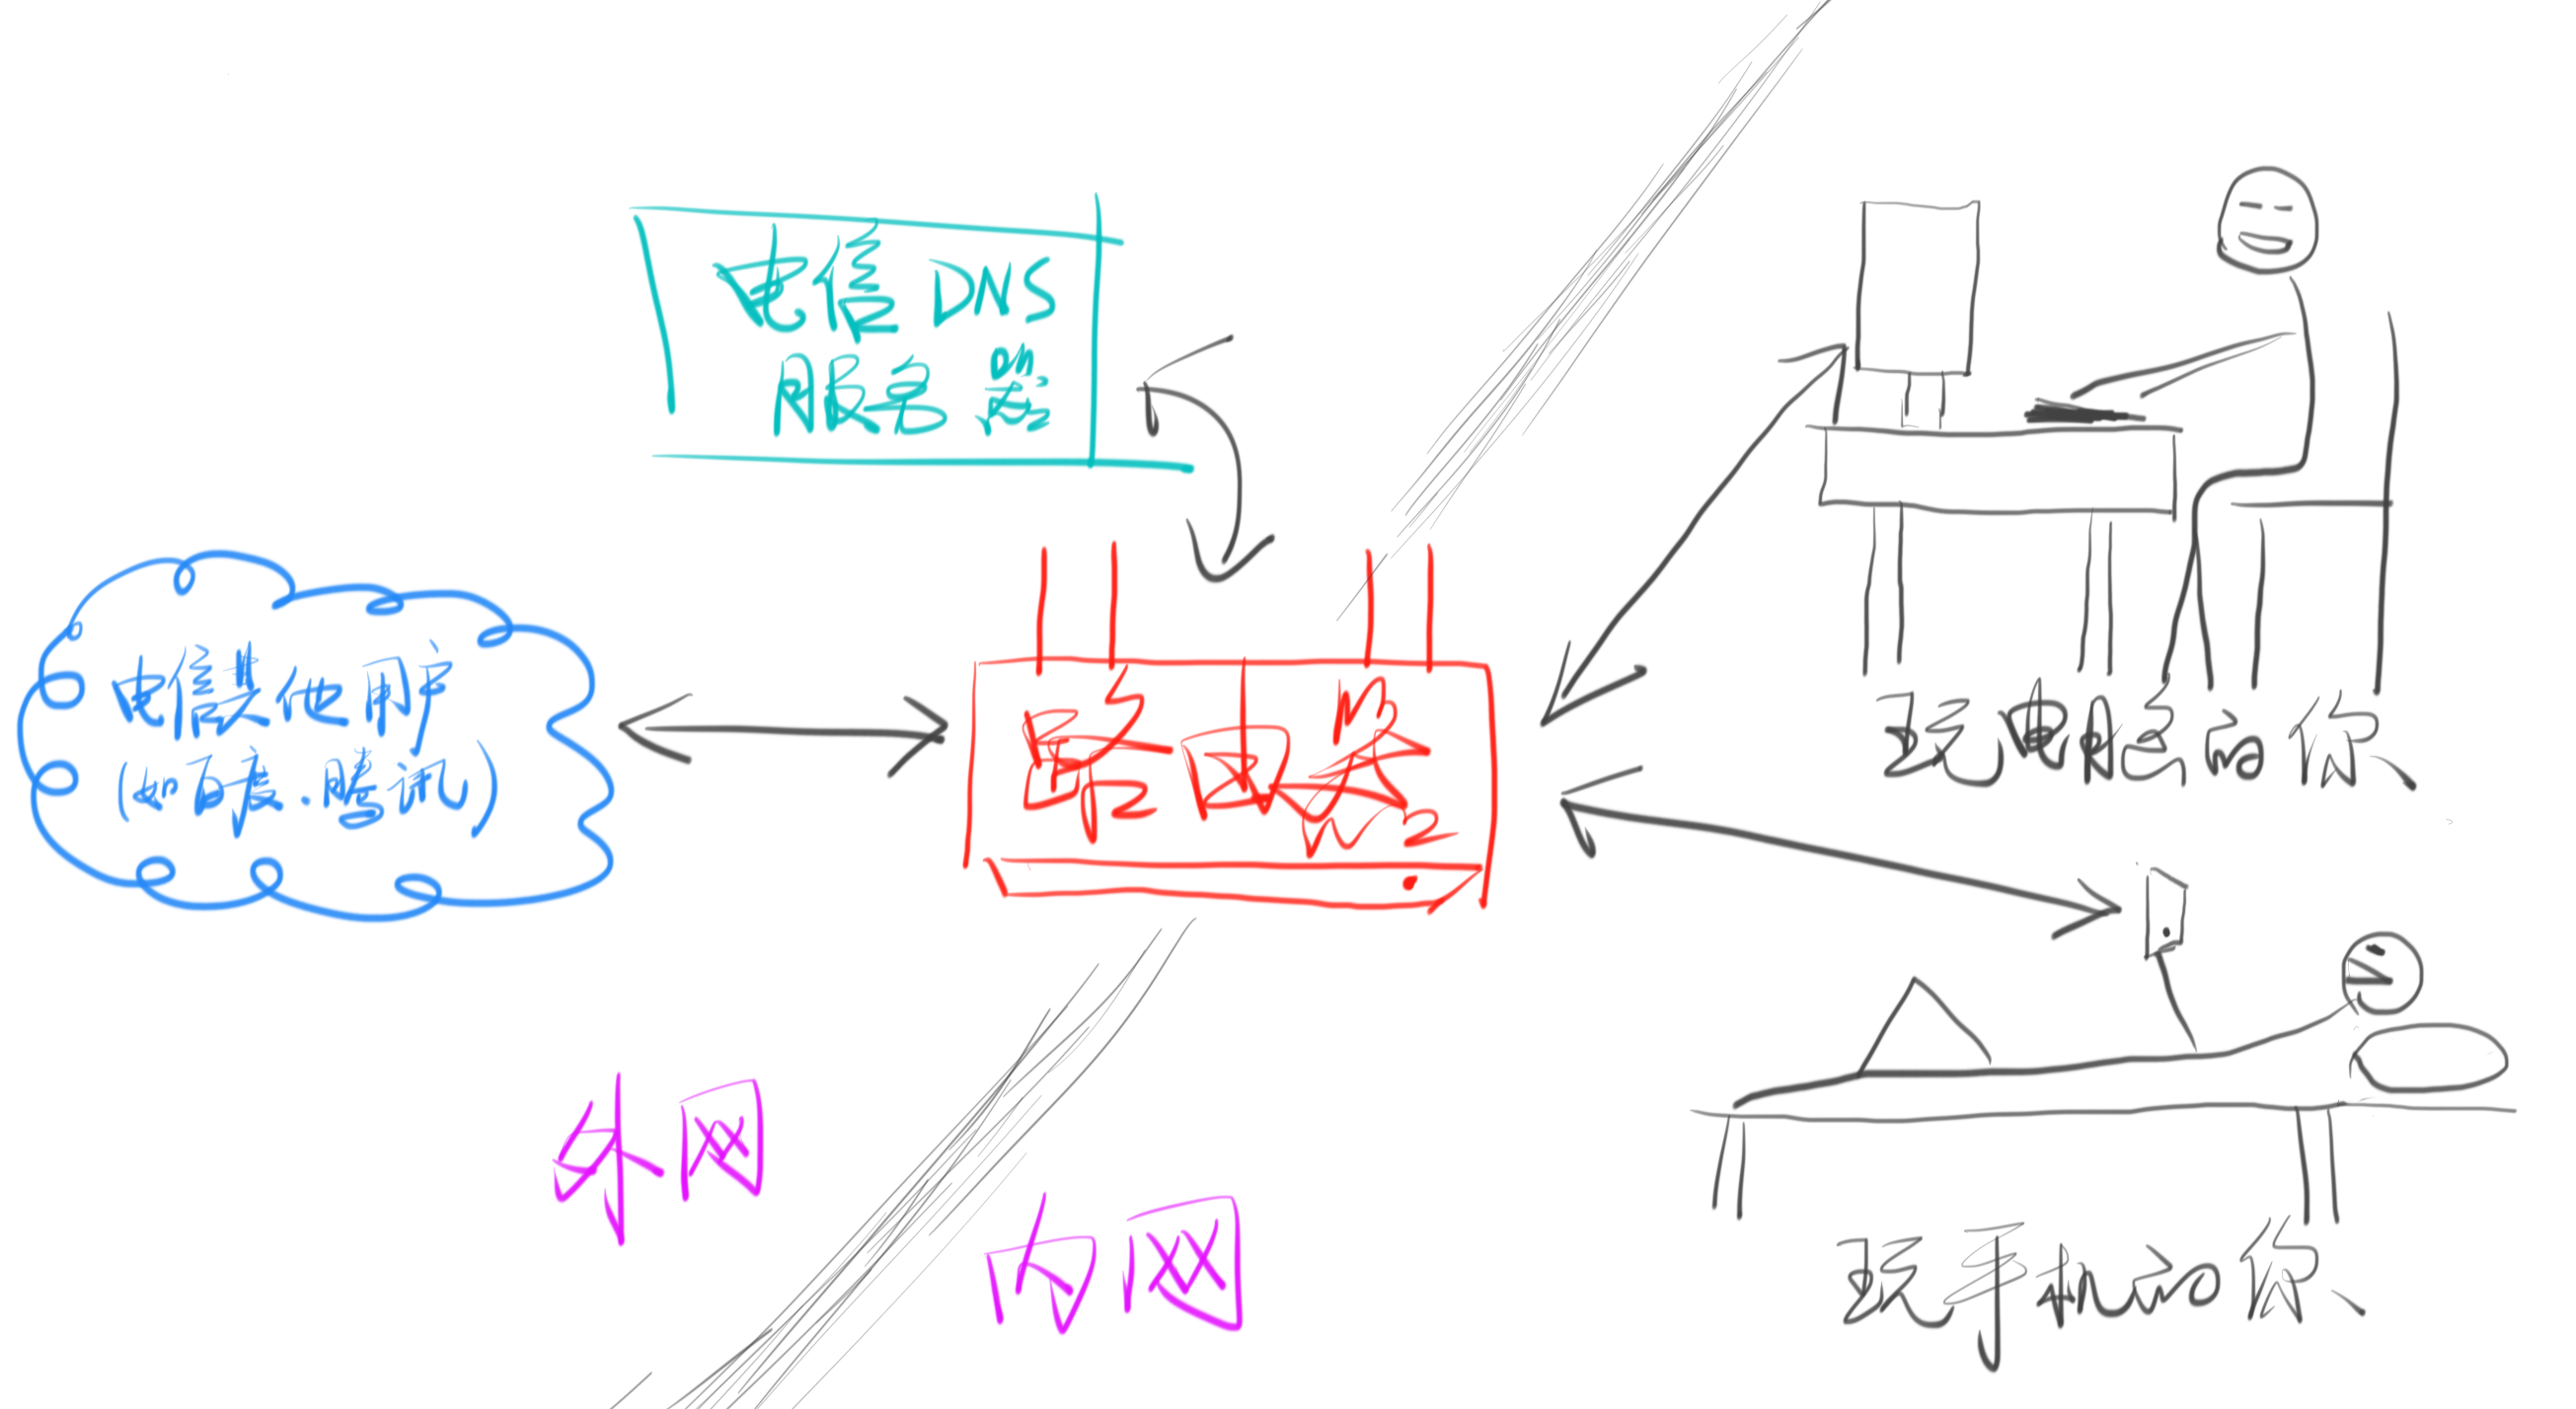 电信DNS
服务器
电信其他用户
(如百度.腾讯)
路由器
玩电脑的你
玩手机的你
外网
内网